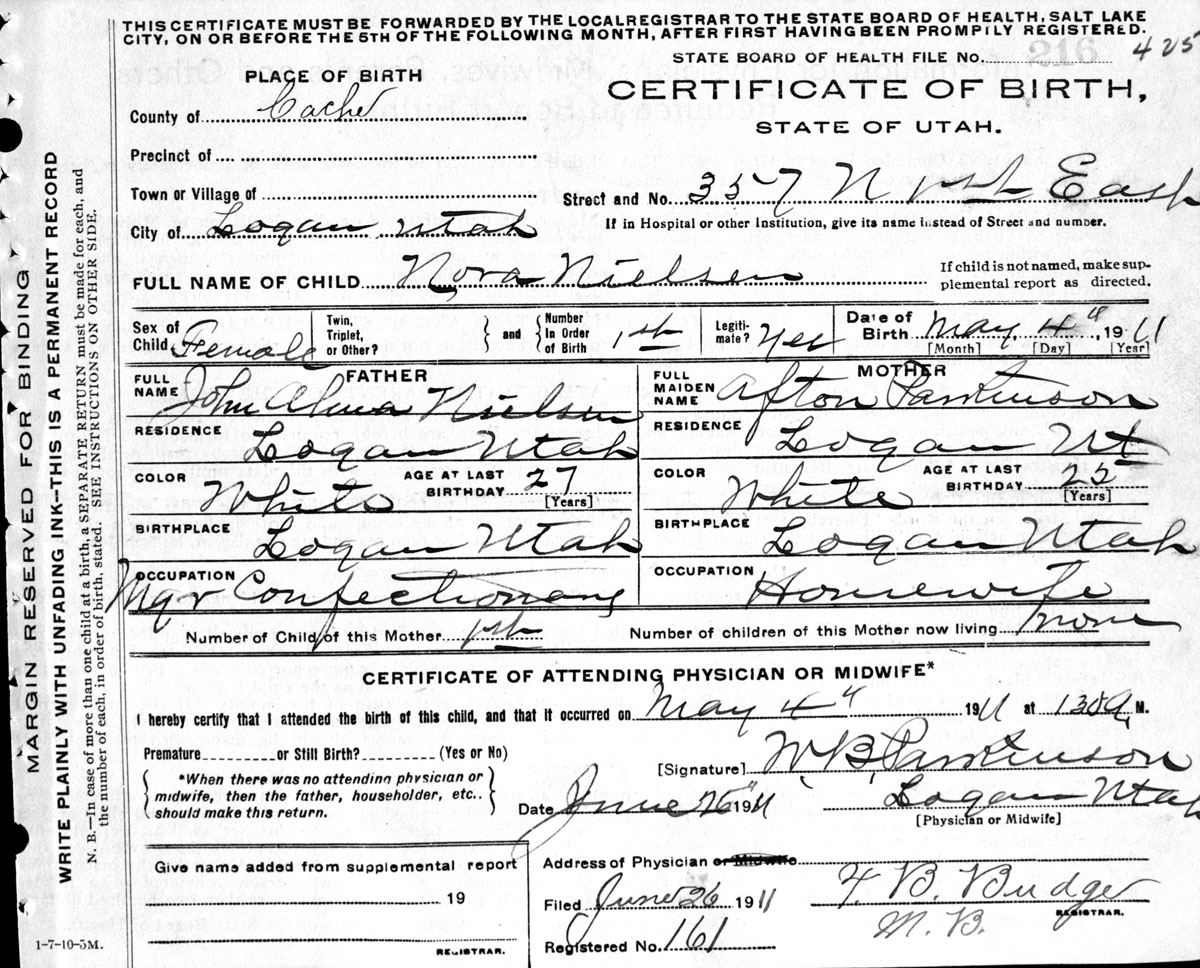 THIS CERTIFICATE MUST BE FORWARDED BY THE LOCAL REGISTRAR TO THE STATE BOARD OF HEALTH, SALT LAKE
CITY, ON OR BEFORE THE 5TH OF THE FOLLOWING MONTH, AFTER FIRST HAVING BEEN PROMPILY REGISTERED.
STATE BOARD OF HEALTH FILE No. 216 425
PLACE OF BIRTH
CERTIFICATE OF BIRTH,
STATE OF UTAH.
County of Cache
Precinct of
Town or Village of
Street and No. 357 N 1st East
City of Logan Utah
If in Hospital or other Institution, give its name instead of Street and number.
FULL NAME OF CHILD Nora Nielsen
If child is not named, make sup-
plemental report as directed.
Sex of Child Female
Twin, Triplet, or Other?
and Number In Order of Birth 1st
Legiti-mate? Yes
Date of Birth May 4th, 1911
[Month] [Day] [Year]
FATHER
FULL NAME John Alma Nielsen
MOTHER
FULL MAIDEN NAME Afton Parkinson
RESIDENCE Logan Utah
RESIDENCE Logan Ut
COLOR White AGE AT LAST BIRTHDAY 27 [Years]
COLOR White AGE AT LAST BIRTHDAY 22 [Years]
BIRTHPLACE Logan Utah
BIRTHPLACE Logan Utah
OCCUPATION Mgr Confectionary
OCCUPATION Housewife
Number of Child of this Mother 1st Number of children of this Mother now living none
CERTIFICATE OF ATTENDING PHYSICIAN OR MIDWIFE*
I hereby certify that I attended the birth of this child, and that it occurred on May 4th 1911 at 1 35 a M.
Premature or Still Birth? (Yes or No)
[Signature] W B Parkinson
*When there was no attending physician or
midwife, then the father, householder, etc..
should make this return.
Date June 26" 1911 Logan Utah
[Physician or Midwife]
Give name added from supplemental report
19
REGISTRAR.
Address of Physician or Midwife
Filed June 26 1911 B. Budge
M.
REGISTRAR.
Registered No. 161
1-7-10-5M.
MARGIN RESERVED FOR BINDING
WRITE PLAINLY WITH UNFADING INK--THIS IS A PERMANENT RECORD
N. B.—In case of more than one child at a birth, a SEPARATE RETURN must be made for each, and
the number of each, in order of birth, stated. SEE INSTRUCTIONS ON OTHER SIDE.